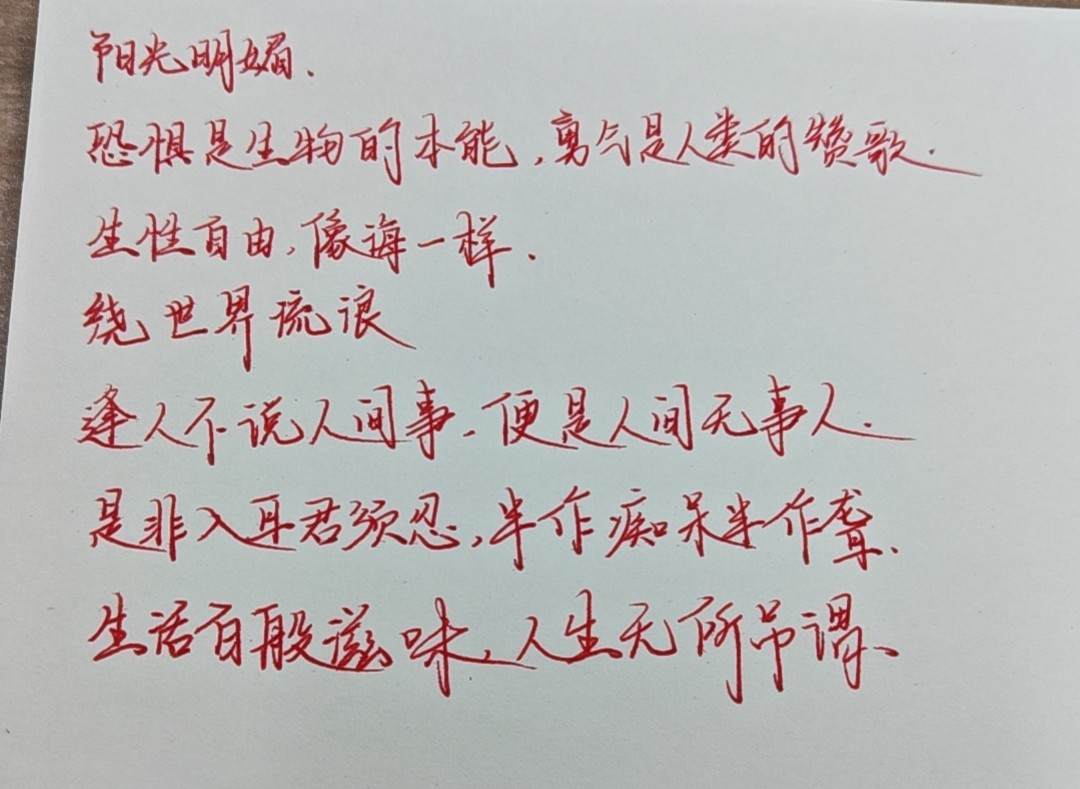 阳光明媚.
恐惧是生物的本能,勇气是人类的赞歌.
生性自由,像海一样.
绕世界流浪
逢人不说人间事,便是人间无事人.
是非入耳君须忍,半作痴呆半作聋.
生活百般滋味,人生无所吊谓、